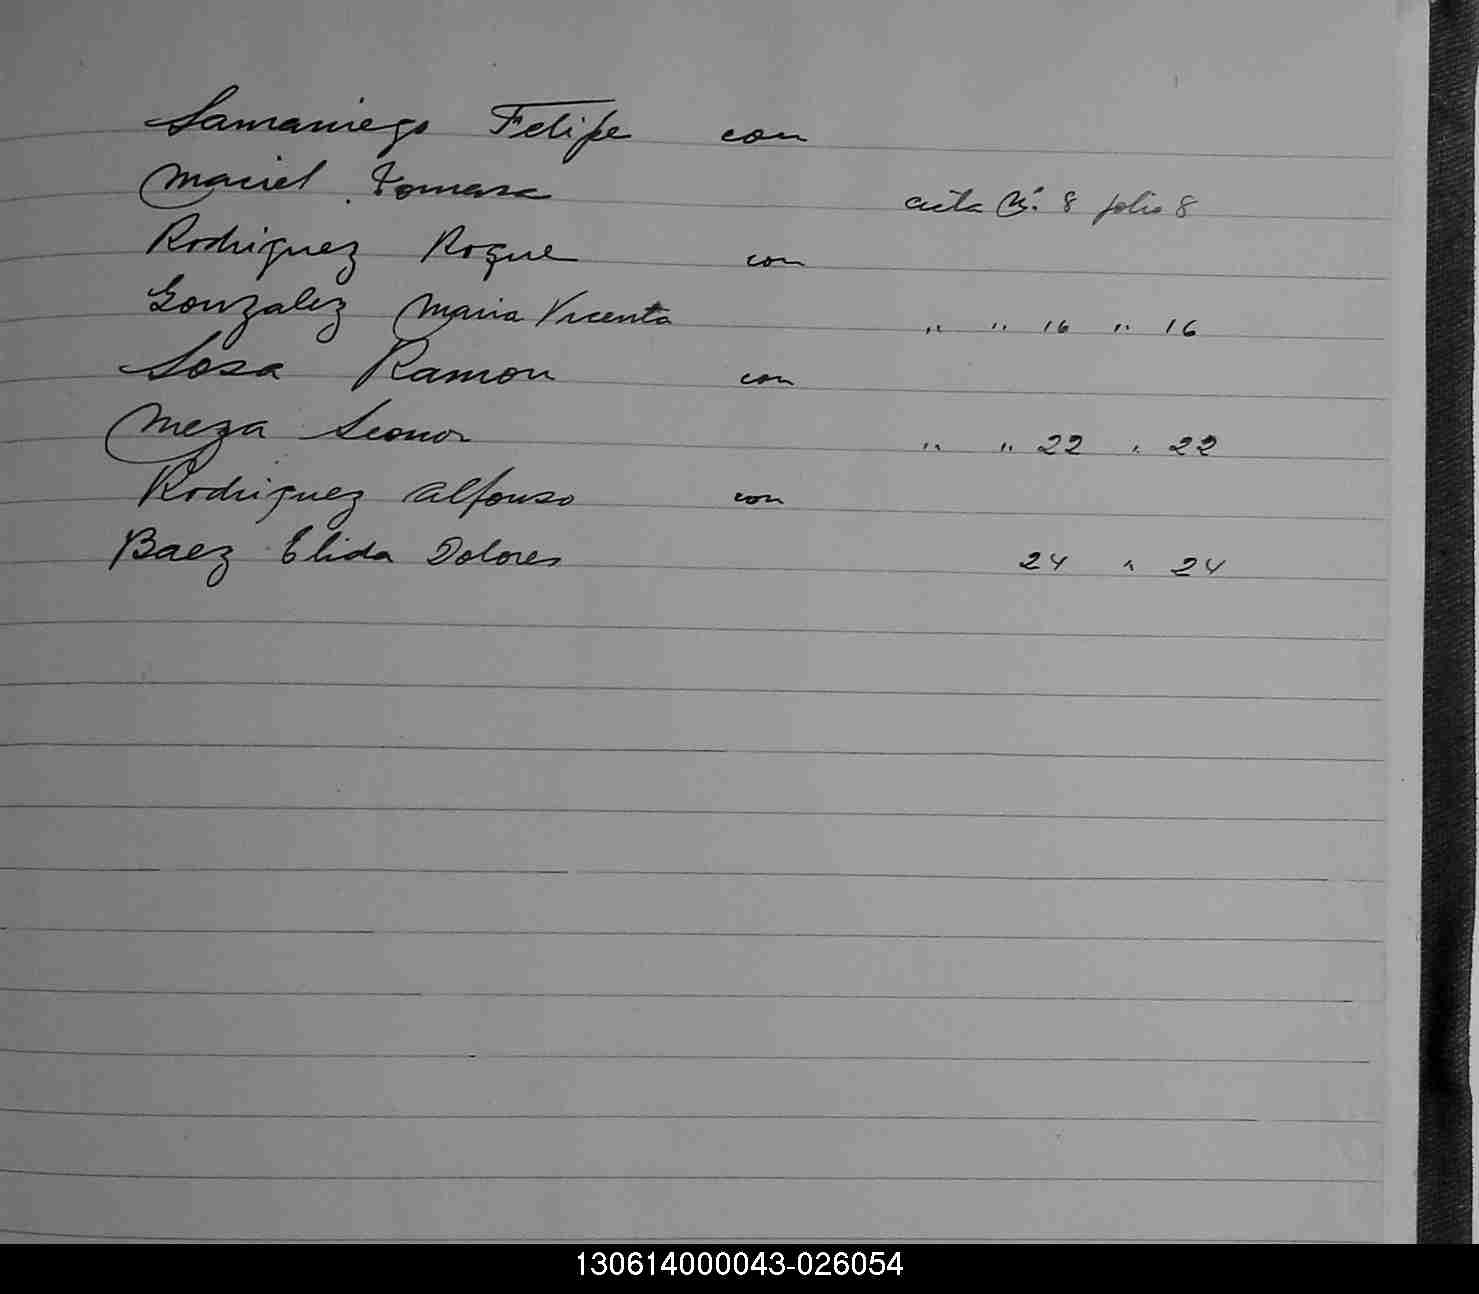 Samaniego Felipe con
Maciel Tomasa acta Nº. 8 folio 8
Rodriguez Roque con
Gonzalez Maria Vicenta " " 16 " 16
Sosa Ramon con
Meza Leonor " " 22 " 22
Rodriguez Alfonso con
Baez Elida Dolores 24 " 24
130614000043-026054